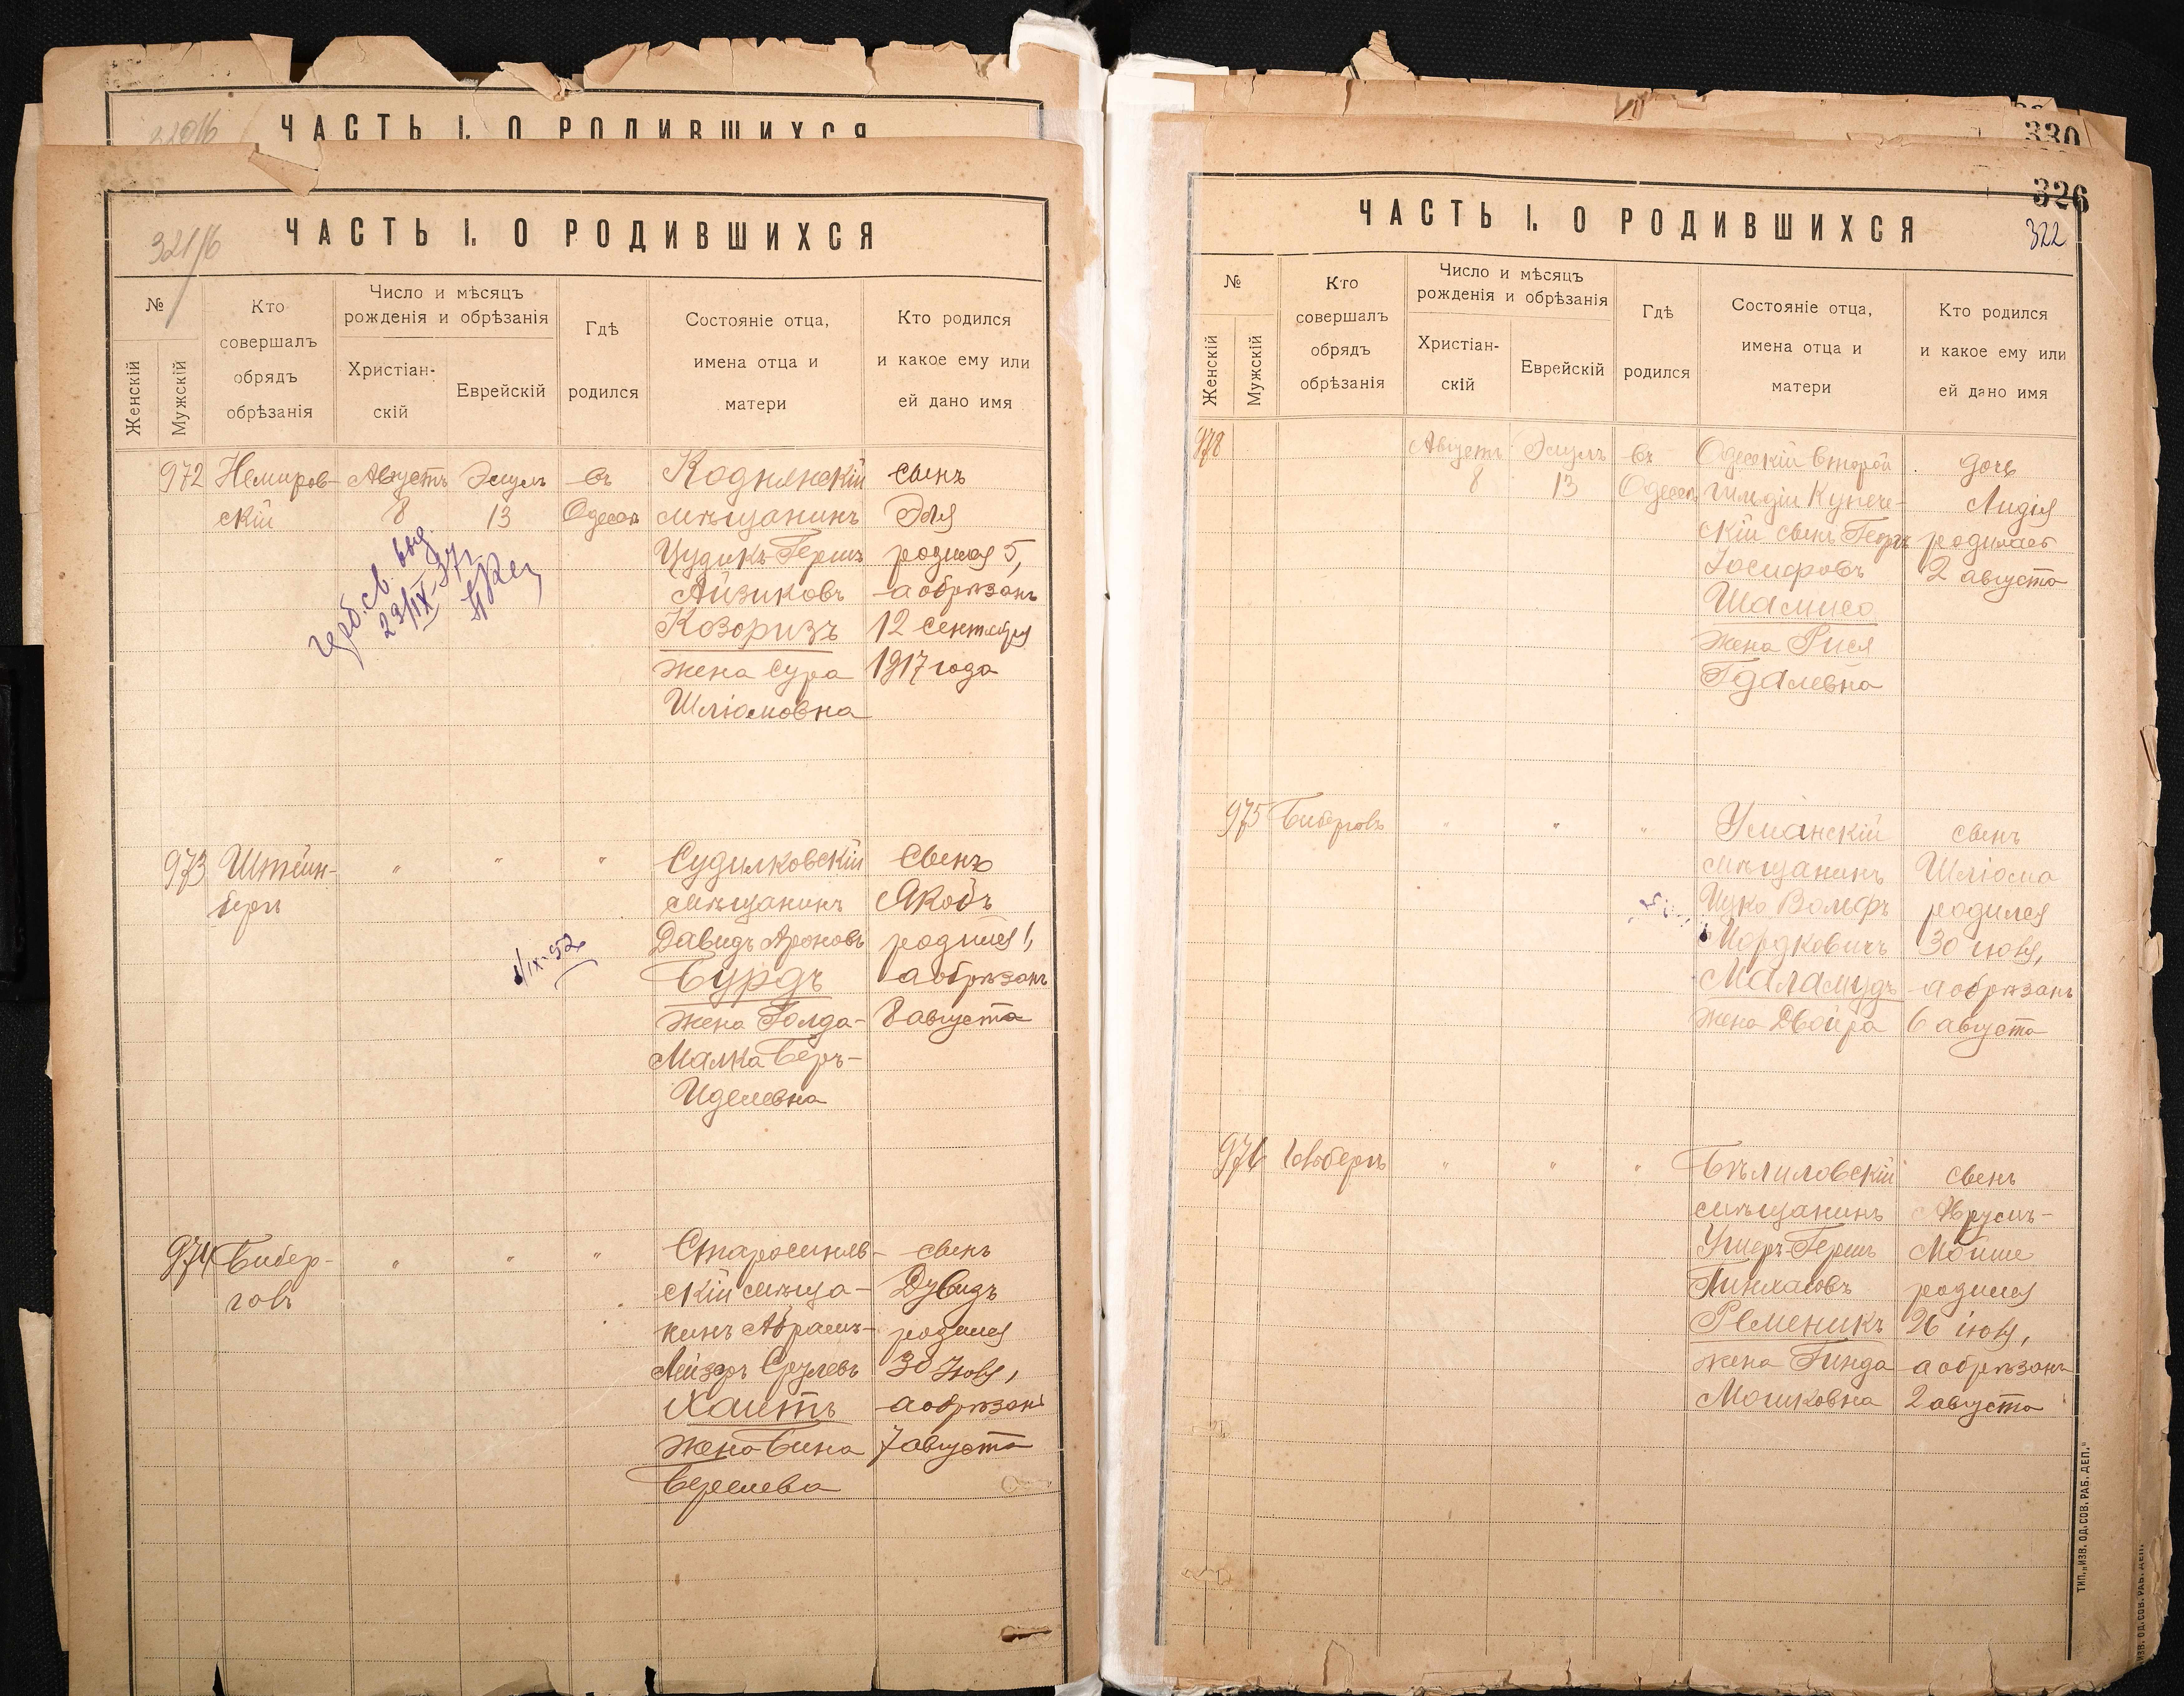 ЧАСТЬ I. О РОДИВШИХСЯ
ЧАСТЬ I. О РОДИВШИХСЯ
№
Женскій
Мужскій
Кто
совершалъ
обрядъ
обрѣзанія
Число и мѣсяцъ
рожденія и обрѣзанія
Христіан-
скій
Еврейскій
Гдѣ
родился
Состояніе отца,
имена отца и
матери
Кто родился
и какое ему или
ей дано имя
972
Немиров-
скій
Августъ
8
Элулъ
13
въ
Одессѣ
Коднянскій
мѣщанинъ
Цудикъ-Гершъ
Айзиковъ
Козоризъ
жена Сура
Шліомовна
сынъ
Эля
родился 5,
а обрѣзанъ
12 Сентября
1917 года
973
Штейн-
бергъ
"
"
"
Судилковскій
мѣщанинъ
Давидъ Ароновъ
Бурдъ
жена Голда-
Малка Беръ-
Иделевна
Сынъ
Якобъ
родился 1,
а обрѣзанъ
8 августа
1/IX-52
974
Бибер-
говъ
"
"
"
Старосиняв-
скій мѣща-
нинъ Абрамъ-
Лейзеръ Срулевъ
Хаитъ
жена Бина
Берелева
сынъ
Дувидъ
родился
30 Іюля,
а обрѣзанъ
7 августа
330
326
322
ЧАСТЬ I. О РОДИВШИХСЯ
№
Женскій
Мужскій
Кто
совершалъ
обрядъ
обрѣзанія
Число и мѣсяцъ
рожденія и обрѣзанія
Христіан-
скій
Еврейскій
Гдѣ
родился
Состояніе отца,
имена отца и
матери
Кто родился
и какое ему или
ей дано имя
978
Августъ
8
Элулъ
13
въ
Одессѣ
Одесскій второй
гильдіи Купече-
скій сынъ
Іосифовъ
Шамисо
жена Рися
Гдалевна
дочь
Лидія
родилась
2 августа
975
Биберговъ
"
"
"
Уманскій
мѣщанинъ
Ицко Вольфъ
Іордковичъ
Маламудъ
жена Двойра
сынъ
Шліома
родился
30 іюля,
а обрѣзанъ
6 августа
976
"
"
"
Бѣлиловскій
мѣщанинъ
Ушеръ-Гершъ
Пинхасовъ
Ременикъ
жена Гинда
Мошковна
сынъ
Аврумъ-
Мойше
родился
26 іюля,
а обрѣзанъ
2 августа
ТИП. „ИЗВ. ОД. СОВ. РАБ. ДЕП."